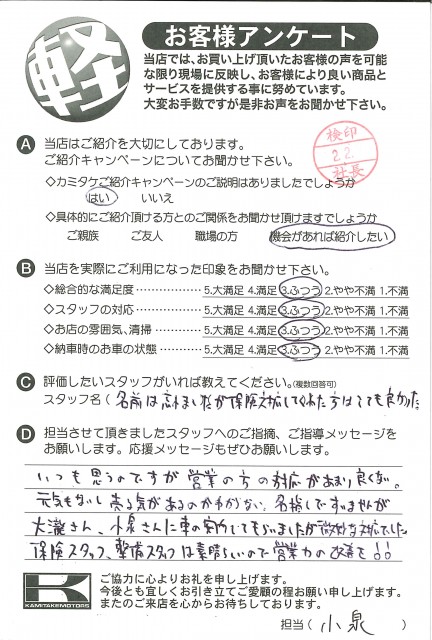 軽
お客様アンケート
当店では、お買い上げ頂いたお客様の声を可能
な限り現場に反映し、お客様により良い商品と
サービスを提供する事に努めています。
大変お手数ですが是非お声をお聞かせ下さい。
検印
22.
社長
A 当店はご紹介を大切にしております。
ご紹介キャンペーンについてお聞かせ下さい。
◇カミタケご紹介キャンペーンのご説明はありましたでしょうか
はい いいえ
◇具体的にご紹介頂ける方とのご関係をお聞かせ頂けますでしょうか
ご親族 ご友人 職場の方 機会があれば紹介したい
B 当店を実際にご利用になった印象をお聞かせ下さい。
◇総合的な満足度 5.大満足 4.満足 3.ふつう 2.やや不満 1.不満
◇スタッフの対応 5.大満足 4.満足 3.ふつう 2.やや不満 1.不満
◇お店の雰囲気、清掃 5.大満足 4.満足 3.ふつう 2.やや不満 1.不満
◇納車時のお車の状態 5.大満足 4.満足 3.ふつう 2.やや不満 1.不満
C 評価したいスタッフがいれば教えてください。(複数回答可)
スタッフ名( 名前は忘れましたが保険対応してくれた方はとても良かった
D 担当させて頂きましたスタッフへのご指摘、ご指導メッセージを
お願いします。応援メッセージもぜひお願いします。
いつも思うのですが営業の方の対応があまり良くない。
元気もないし売る気があるのかわからない。名指しですいませんが
大瀧さん、小泉さんに車の案内してもらいましたが微妙な対応でした
保険スタッフ、整備スタッフは素晴らしいので営業力の改善を!!
K
KAMITAKEMOTORS
ご協力に心よりお礼を申し上げます。
今後とも宜しくお引き立てご愛顧の程お願い申し上げます。
またのご来店を心からお待ちしております。
担当( 小泉 )